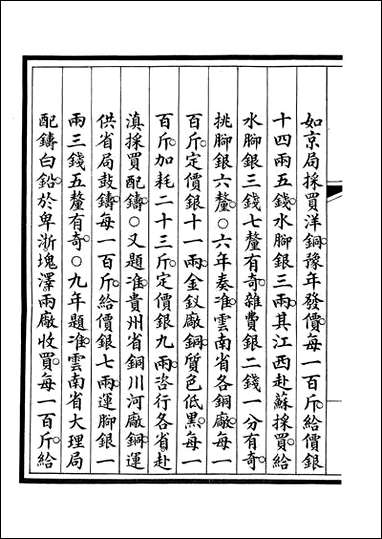 如京局採買洋銅豫年發價每一百斤給價銀
十四兩五錢水腳銀三兩其江西赴蘇採買給
水腳銀三錢七釐有奇雜費銀二錢一分有奇
挑腳銀六釐○六年奏准雲南省各銅廠每一
百斤定價銀十一兩金釵廠銅質色低黑每一
百斤加耗二十三斤定價銀九兩咨行各省赴
滇採買配鑄○又題准貴州省銅川河廠銅運
供省局鼓鑄每一百斤給價銀七兩運腳銀一
兩三錢五釐有奇○九年題准雲南省大理局
配鑄白鉛於卑浙塊澤兩廠收買每一百斤給